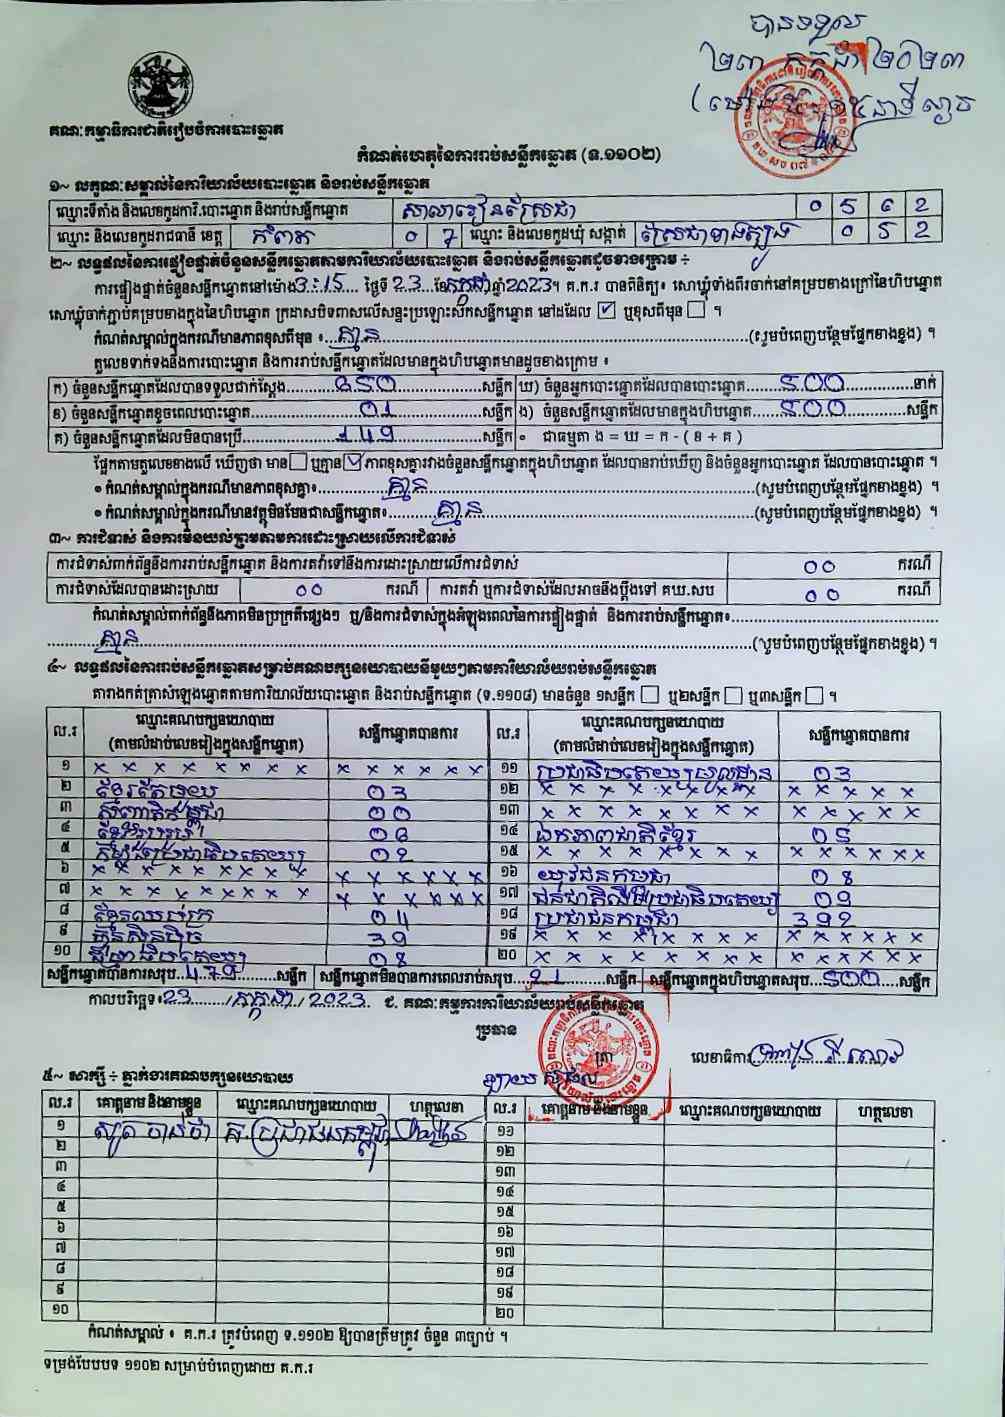 បានទទួល
២៣ កក្កដា ២០២៣
គណៈកម្មាធិការជាតិរៀបចំការបោះឆ្នោត
កំណត់ហេតុនៃការរាប់សន្លឹកឆ្នោត (ទ.១១០២)
១~ លក្ខណៈសម្គាល់នៃការិយាល័យបោះឆ្នោត និងរាប់សន្លឹកឆ្នោត
ឈ្មោះទីតាំង និងលេខកូដការិ.បោះឆ្នោត និងរាប់សន្លឹកឆ្នោត សាលារៀនស្រែជា
ឈ្មោះ និងលេខកូដរាជធានី ខេត្ត កំពត 0 7 ឈ្មោះ និងលេខកូដឃុំ សង្កាត់ ស្រែជាខាងត្បូង
២~ លទ្ធផលនៃការផ្ទៀងផ្ទាត់ចំនួនសន្លឹកឆ្នោតតាមការិយាល័យបោះឆ្នោត និងរាប់សន្លឹកឆ្នោតដូចខាងក្រោម ÷
ការផ្ទៀងផ្ទាត់ចំនួនសន្លឹកឆ្នោតនៅម៉ោង 3:15 ថ្ងៃទី 23 ខែ កក្កដា ឆ្នាំ 2023។ គ.ក.រ បានពិនិត្យ៖ សោឃ្លុំទាំងពីរចាក់នៅគម្របខាងក្រៅនៃហិបឆ្នោត
សោឃ្លុំចាក់ភ្ជាប់គម្របខាងក្នុងនៃហិបឆ្នោត ក្រដាសបិទពាសលើសន្ទះប្រឡោះស៊កសន្លឹកឆ្នោត នៅដដែល ☑ ឬខុសពីមុន ☐ ។
កំណត់សម្គាល់ក្នុងករណីមានភាពខុសពីមុន ៖ គ្មាន (សូមបំពេញបន្ថែមផ្នែកខាងខ្នង) ។
តួលេខទាក់ទងនឹងការបោះឆ្នោត និងការរាប់សន្លឹកឆ្នោតដែលមានក្នុងហិបឆ្នោតមានដូចខាងក្រោម ៖
ក) ចំនួនសន្លឹកឆ្នោតដែលបានទទួលជាក់ស្តែង 650 សន្លឹក ឃ) ចំនួនអ្នកបោះឆ្នោតដែលបានបោះឆ្នោត 500 នាក់
ខ) ចំនួនសន្លឹកឆ្នោតខូចពេលបោះឆ្នោត 01 សន្លឹក ង) ចំនួនសន្លឹកឆ្នោតដែលមានក្នុងហិបឆ្នោត 500 សន្លឹក
គ) ចំនួនសន្លឹកឆ្នោតដែលមិនបានប្រើ 149 សន្លឹក ៖ ជាធម្មតា ង = ឃ = ក - ( ខ + គ )
ផ្អែកតាមតួលេខខាងលើ ឃើញថា មាន ☐ ឬគ្មាន ☑ ភាពខុសគ្នារវាងចំនួនសន្លឹកឆ្នោតក្នុងហិបឆ្នោត ដែលបានរាប់ឃើញ និងចំនួនអ្នកបោះឆ្នោត ដែលបានបោះឆ្នោត ។
• កំណត់សម្គាល់ក្នុងករណីមានភាពខុសគ្នា៖ គ្មាន (សូមបំពេញបន្ថែមផ្នែកខាងខ្នង) ។
• កំណត់សម្គាល់ក្នុងករណីមានវត្ថុមិនមែនជាសន្លឹកឆ្នោត៖ គ្មាន (សូមបំពេញបន្ថែមផ្នែកខាងខ្នង) ។
៣~ ការជំទាស់ និងការមិនយល់ព្រមតាមការដោះស្រាយលើការជំទាស់
ការជំទាស់ពាក់ព័ន្ធនឹងការរាប់សន្លឹកឆ្នោត និងការតវ៉ាទៅនឹងការដោះស្រាយលើការជំទាស់ 00 ករណី
ការជំទាស់ដែលបានដោះស្រាយ 00 ករណី ការតវ៉ា ឬការជំទាស់ដែលអាចនឹងប្តឹងទៅ គឃ.សប 00 ករណី
កំណត់សម្គាល់ពាក់ព័ន្ធនឹងភាពមិនប្រក្រតីផ្សេងៗ ឬ/និងការជំទាស់ក្នុងអំឡុងពេលនៃការផ្ទៀងផ្ទាត់ និងការរាប់សន្លឹកឆ្នោត៖
គ្មាន (សូមបំពេញបន្ថែមផ្នែកខាងខ្នង) ។
៤~ លទ្ធផលនៃការរាប់សន្លឹកឆ្នោតសម្រាប់គណបក្សនយោបាយនីមួយៗតាមការិយាល័យរាប់សន្លឹកឆ្នោត
តារាងកត់ត្រាសំឡេងឆ្នោតតាមការិយាល័យបោះឆ្នោត និងរាប់សន្លឹកឆ្នោត (ទ.១១០៨) មានចំនួន ១សន្លឹក ☐ ឬ២សន្លឹក ☐ ឬ៣សន្លឹក ☐ ។
ល.រ ឈ្មោះគណបក្សនយោបាយ (តាមលំដាប់លេខរៀងក្នុងសន្លឹកឆ្នោត) សន្លឹកឆ្នោតបានការ ល.រ ឈ្មោះគណបក្សនយោបាយ (តាមលំដាប់លេខរៀងក្នុងសន្លឹកឆ្នោត) សន្លឹកឆ្នោតបានការ
១ × × × × × × × × × × × × × ១១ ប្រជាធិបតេយ្យមូលដ្ឋាន 03
២ ខ្មែរតែមួយ 03 ១២ × × × × × × × ×
៣ 00 ១៣ × × × × × × × ×
៤ ១៤ ឯកភាពជាតិខ្មែរ 05
៥ ១៥ × × × × × × × ×
៦ × × × × × × × × ១៦ យុវជនកម្ពុជា 08
៧ × × × × × × × × ១៧ ជនជាតិដើមប្រជាធិបតេយ្យ
៨ ខ្មែរឈប់ក្រ 04 ១៨ ប្រជាជនកម្ពុជា 392
៩ ហ្វ៊ុនស៊ិនប៉ិច 39 ១៩ × × × × × × × ×
១០ 08 ២០ × × × × × × × ×
សន្លឹកឆ្នោតបានការសរុប 479 សន្លឹក សន្លឹកឆ្នោតមិនបានការពេលរាប់សរុប 21 សន្លឹក សន្លឹកឆ្នោតក្នុងហិបឆ្នោតសរុប 500 សន្លឹក
កាលបរិច្ឆេទ៖ 23 / កក្កដា / 2023. ជ. គណៈកម្មការការិយាល័យរាប់សន្លឹកឆ្នោត
ប្រធាន
ត្រា លេខាធិការ
៥~ សាក្សី ÷ ភ្នាក់ងារគណបក្សនយោបាយ
ល.រ គោត្តនាម និងនាមខ្លួន ឈ្មោះគណបក្សនយោបាយ ហត្ថលេខា ល.រ គោត្តនាម និងនាមខ្លួន ឈ្មោះគណបក្សនយោបាយ ហត្ថលេខា
១ គ.ប្រជាជនកម្ពុជា ១១
២ ១២
៣ ១៣
៤ ១៤
៥ ១៥
៦ ១៦
៧ ១៧
៨ ១៨
៩ ១៩
១០ ២០
កំណត់សម្គាល់ ៖ គ.ក.រ ត្រូវបំពេញ ទ.១១០២ ឱ្យបានត្រឹមត្រូវ ចំនួន ៣ច្បាប់ ។
ទម្រង់បែបបទ ១១០២ សម្រាប់បំពេញដោយ គ.ក.រ